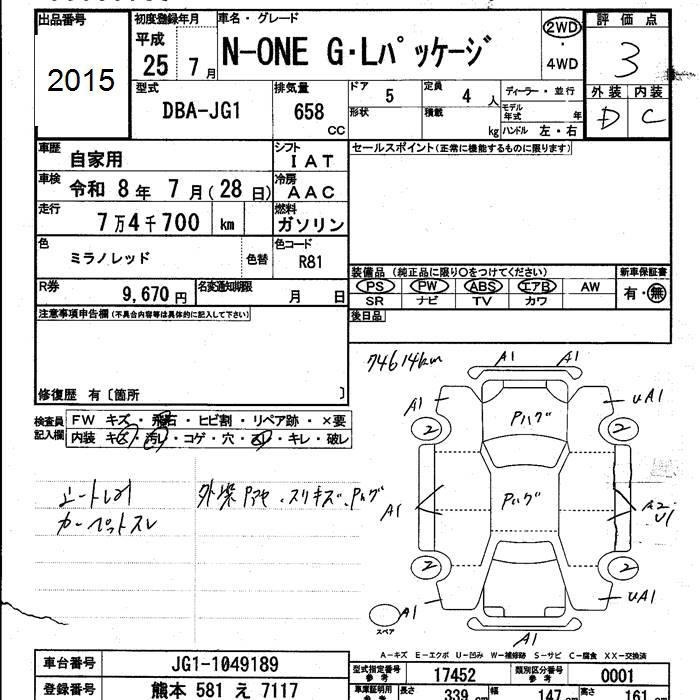 出品番号 初度登録年月 車名・グレード 評価点
2015
平成 25年 7月 N-ONE G・Lパッケージ 2WD・4WD 3
型式 DBA-JG1 排気量 658 CC
ドア 5 定員 4 人 ディーラー・並行 外装 内装
形状 積載 kg モデル年式 年 D C
ハンドル 左・右
車歴 自家用 シフト IAT セールスポイント(正常に機能するものに限ります)
車検 令和 8年 7月(28日) 冷房 AAC
走行 7万4千700 km 燃料 ガソリン
色 ミラノレッド 色替 色コード R81
装備品 (純正品に限り○をつけてください) 新車保証書
PS PW ABS エアB AW 有・無
SR ナビ TV カワ
R券 9,670円 名変通知期限 月 日
後日品
注意事項申告欄(不具合内容等は具体的に記入して下さい)
修復歴 有〔箇所 〕
検査員記入欄 FW キズ・飛石・ヒビ割・リペア跡・×要
内装 キズ・汚レ・コゲ・穴・スレ・キレ・破レ
シートヨゴレ
カーペットスレ
外装 キズ・スリキズ・Pハゲ
74614km
A1 A1
A1 UA1
Pハゲ
2 2
Pハゲ
A1 A2
U1
2 2
UA1
A1
スペア
A1
A-キズ E-エクボ U-凹み W-補修跡 S-サビ C-腐食 XX-交換済
車台番号 JG1-1049189
登録番号 熊本 581 え 7117
型式指定番号 参考 17452 類別区分番号 参考 0001
車庫証明用 参考 長さ 339 cm 幅 147 cm 高さ 161 cm